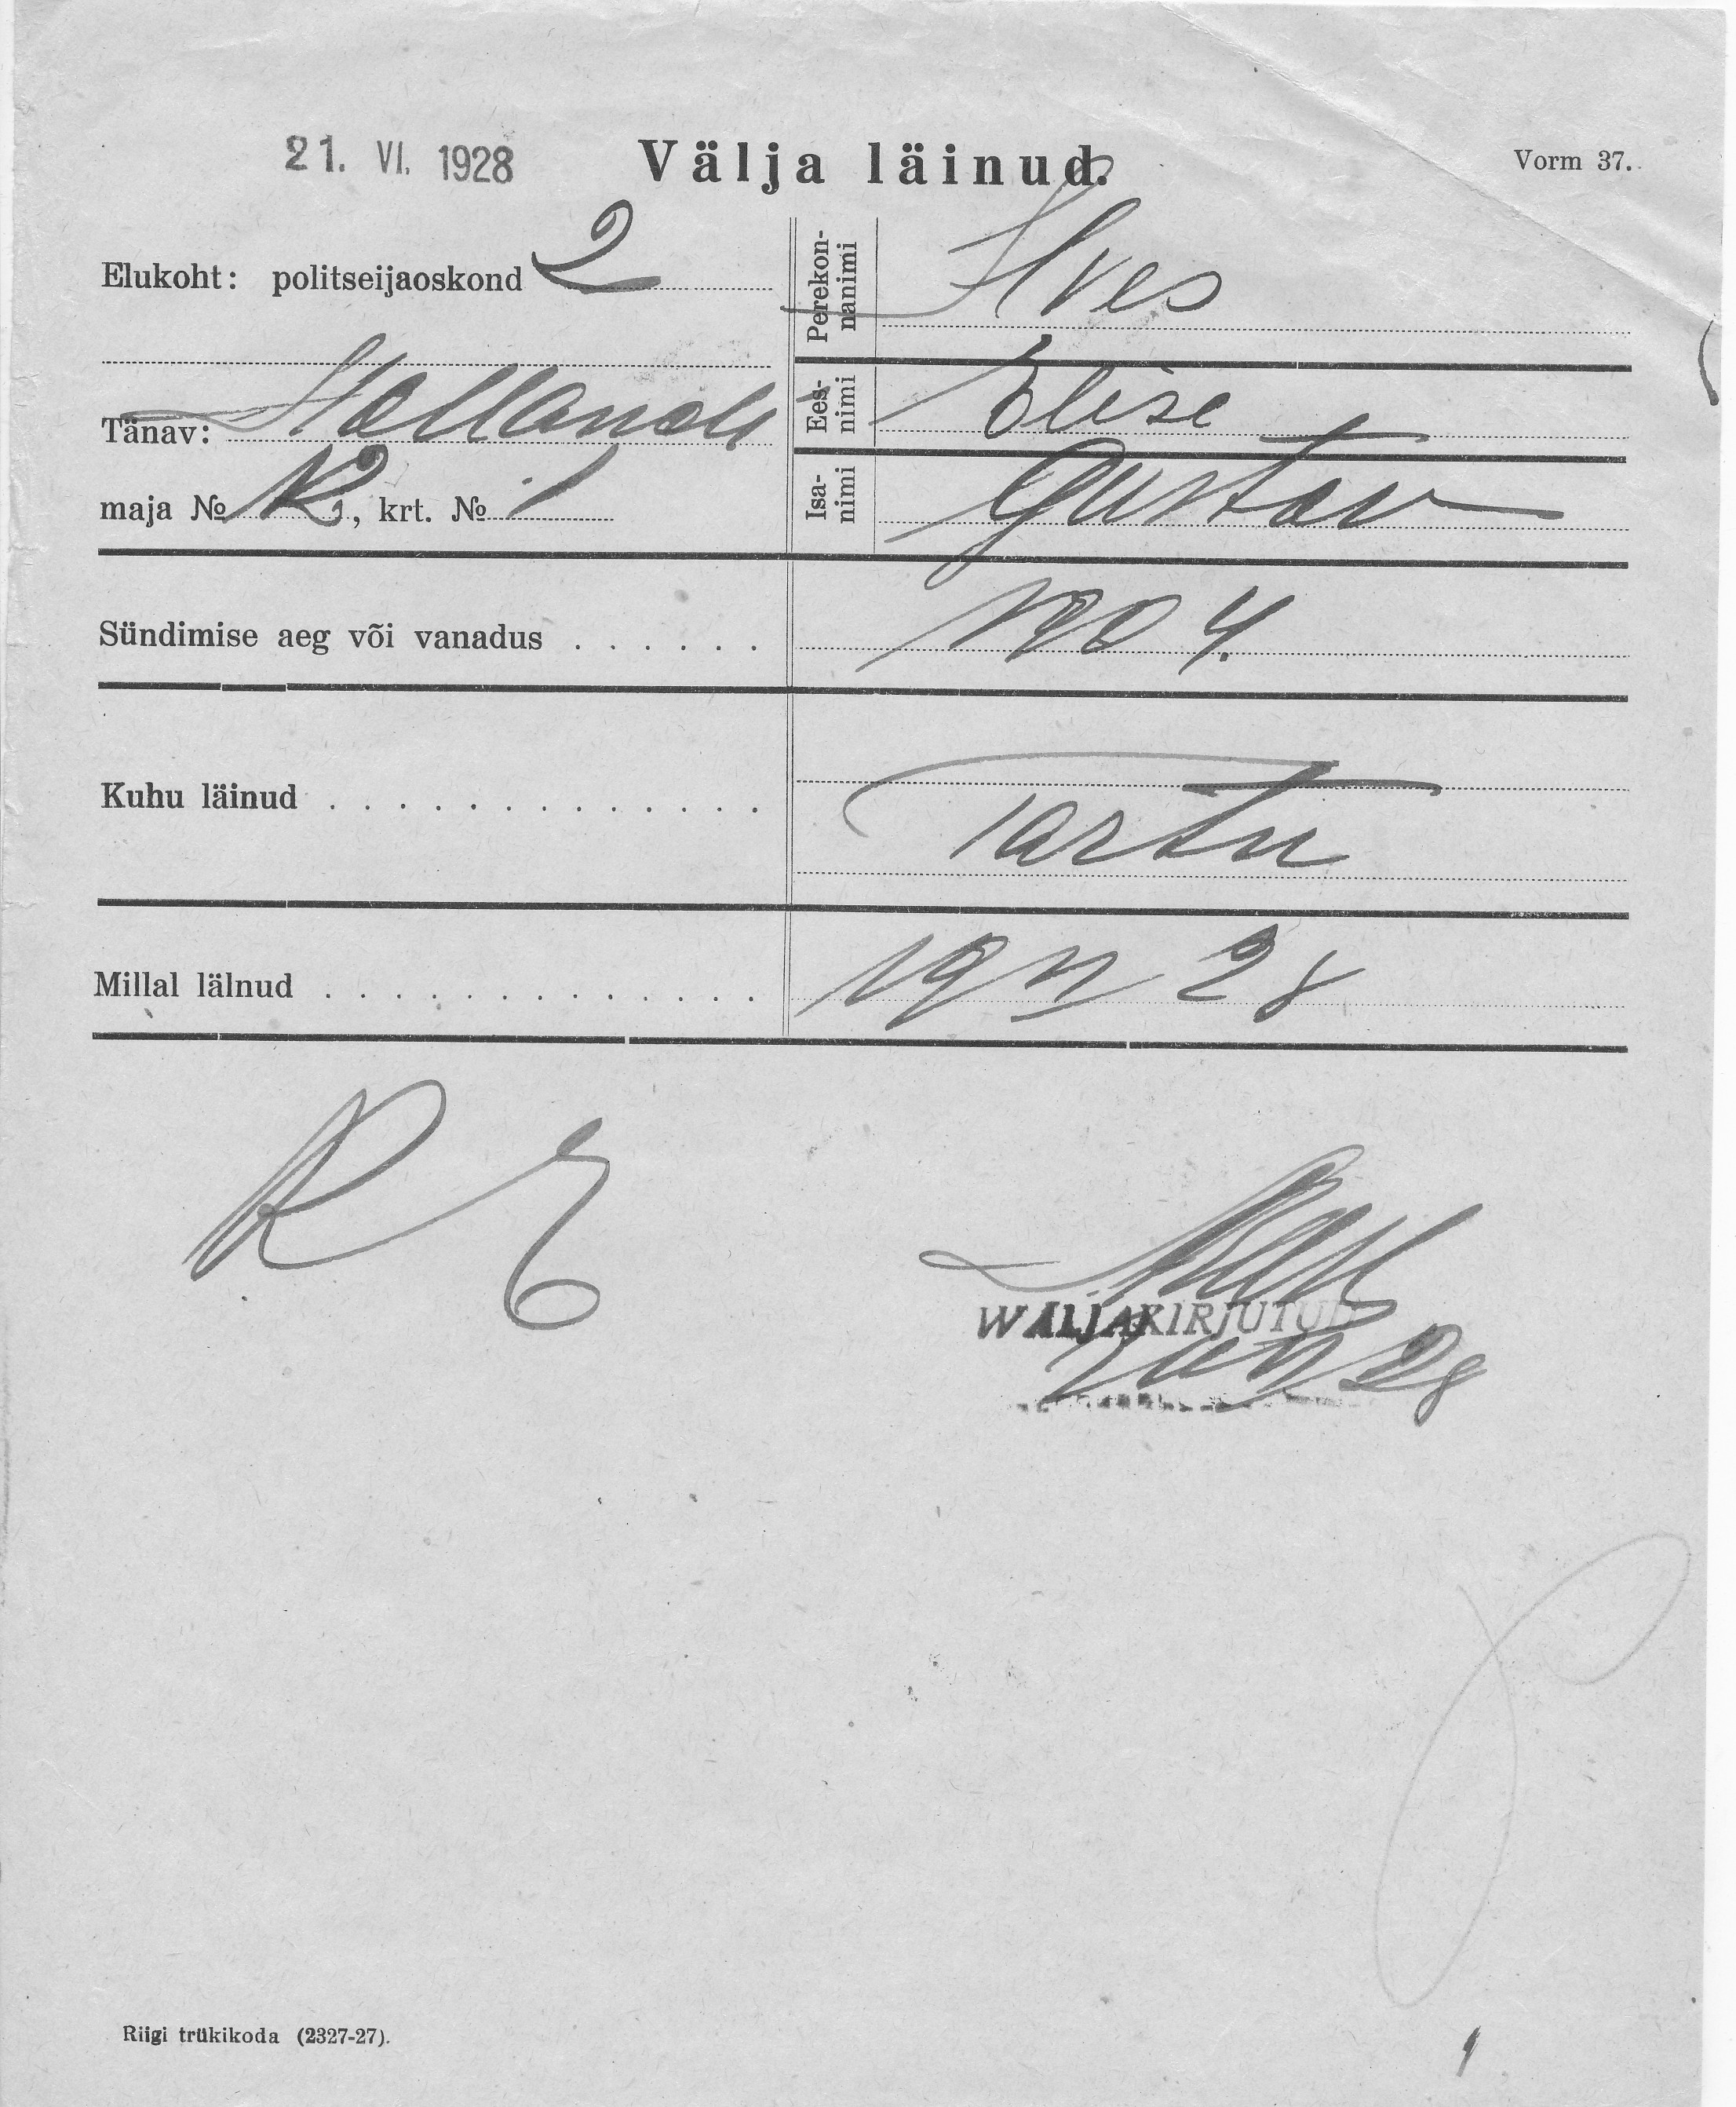 21. VI. 1928 Välja läinud. Vorm 37.
Elukoht: politseijaoskond 2
Perekon-
nanimi
Ilves
Tänav: Hollandi
Ees-
nimi
Elise
maja № 12, krt. № 1
Isa-
nimi
Gustav
Sündimise aeg või vanadus . . . . . . 1904.
Kuhu läinud . . . . . . . . . . . . . . Tartu
Millal lälnud . . . . . . . . . . . . . . 19 VI 28
WÄLJAKIRJUTUD
28
Riigi trükikoda (2327-27).